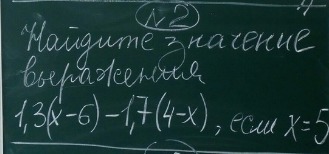 №2
Найдите значение
выражения
1,3(x-6)-1,7(4-x), если x=5